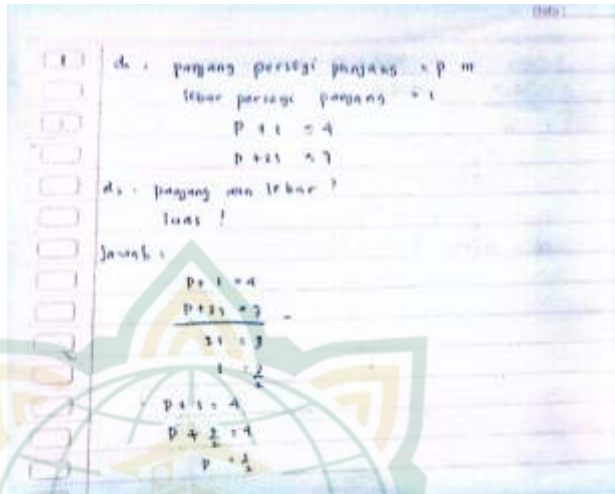 1 d1 : panjang persegi panjang = p m
lebar persegi panjang = l
p + l = 4
p + 2l = 7
d2 : panjang dan lebar ?
luas !
Jawab :
p + l = 4
p + 3l = 7 -
2l = 3
l = 3/2
p + l = 4
p + 3/2 = 4
p =